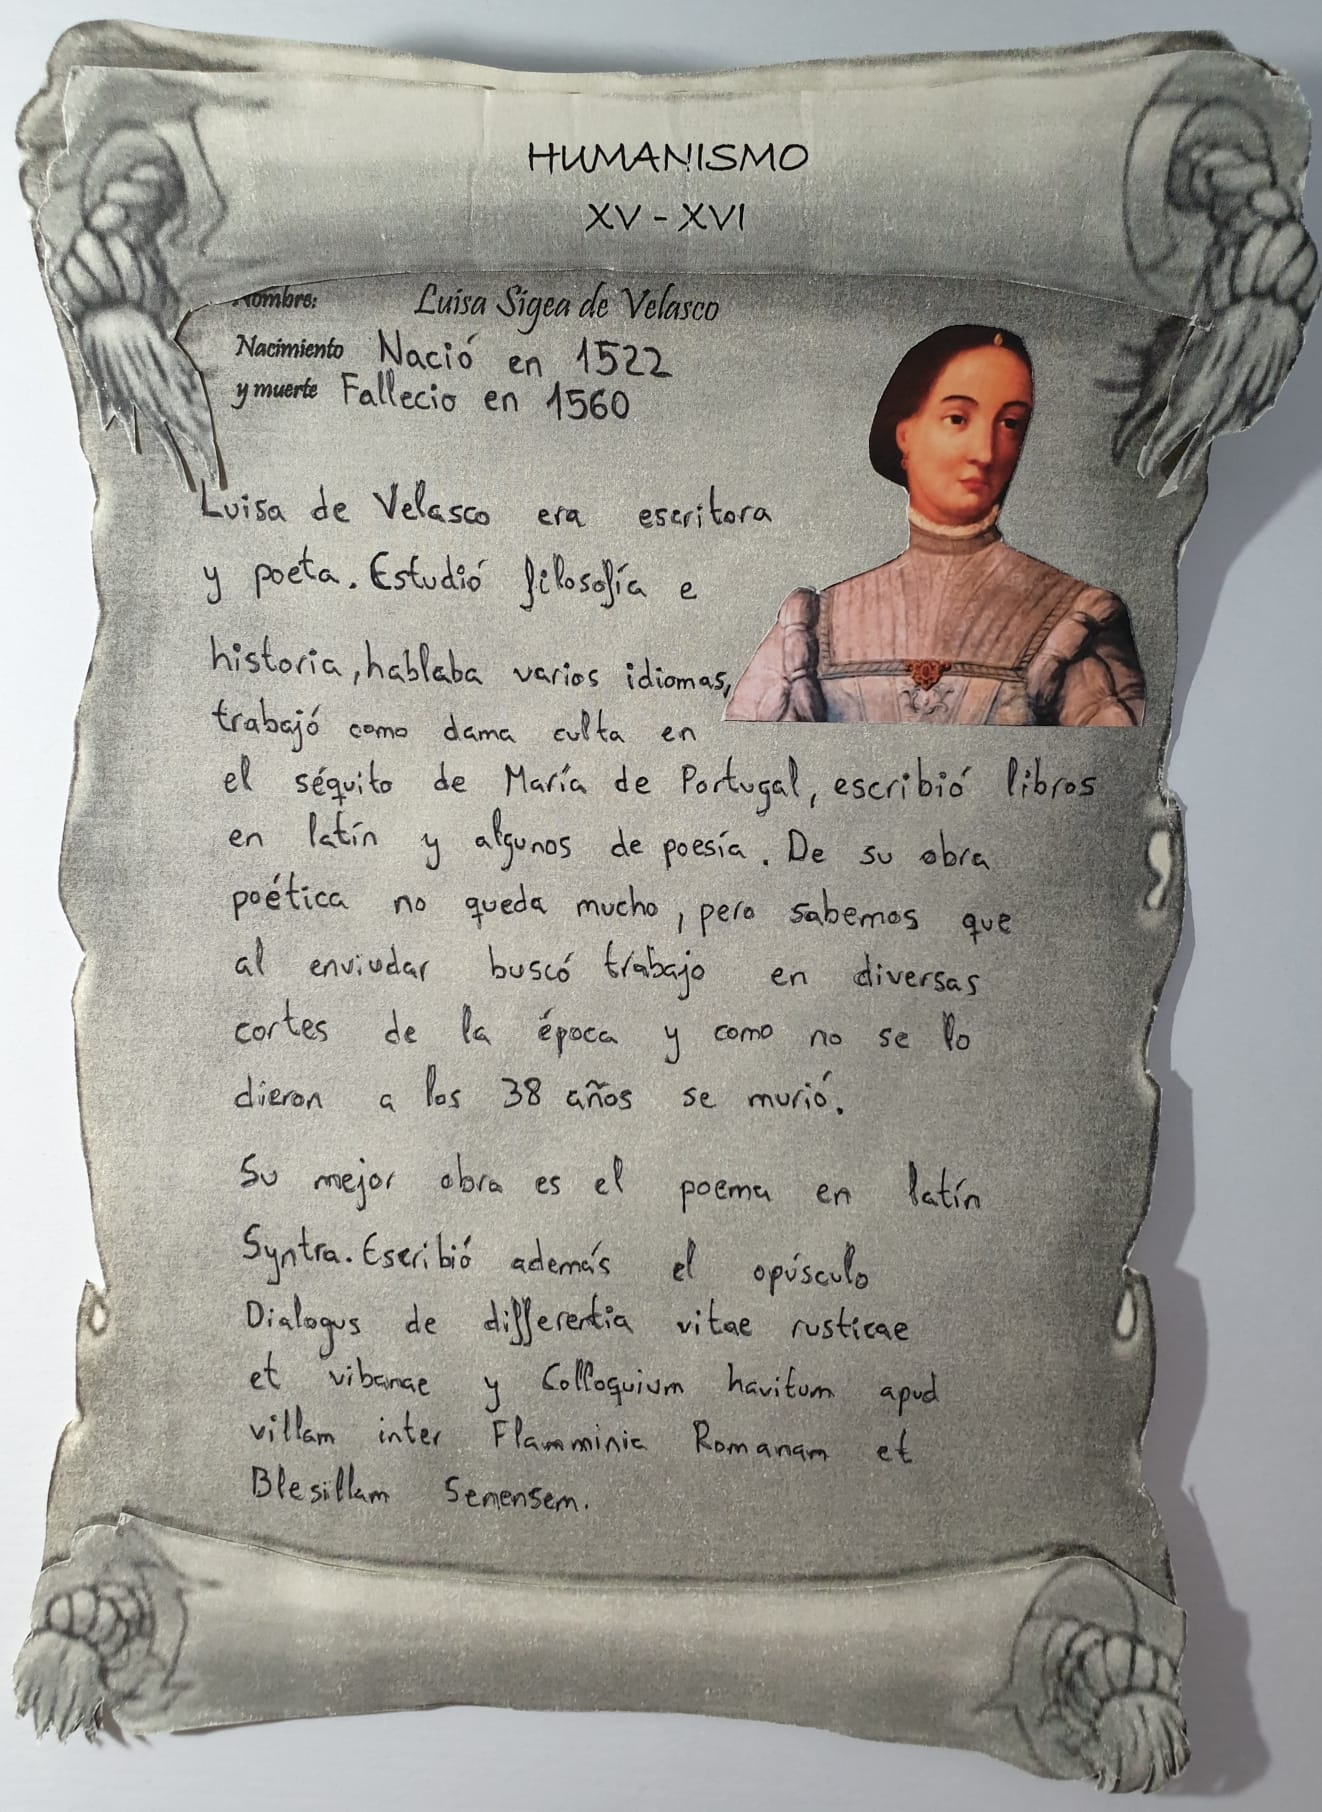 HUMANISMO
XV - XVI
Nombre: Luisa Sigea de Velasco
Nacimiento Nació en 1522
y muerte Fallecio en 1560
Luisa de Velasco era escritora
y poeta. Estudió filosofía e
historia, hablaba varios idiomas,
trabajó como dama culta en
el séquito de María de Portugal, escribió libros
en latín y algunos de poesía. De su obra
poética no queda mucho, pero sabemos que
al enviudar buscó trabajo en diversas
cortes de la época y como no se lo
dieron a los 38 años se murió.
Su mejor obra es el poema en latín
Syntra. Escribió además el opúsculo
Dialogus de differentia vitae rusticae
et vibanae y Colloquium havitum apud
villam inter Flamminia Romanam et
Blesillam Senensem.